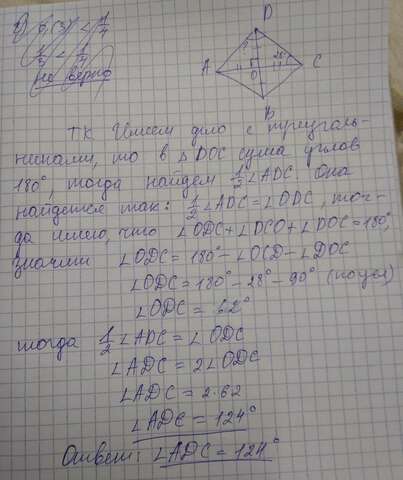 1/3 < 1/4
не верно
D
A
28°
C
O
B
Тк Имеем дело с треуголь-
никами, то в △DOC сума углов
180°, тогда найдем 1/2∠ADC. Она
найдется так: 1/2∠ADC = ∠ODC, тог-
да имеем, что ∠ODC + ∠DCO + ∠DOC = 180°,
значит ∠ODC = 180° - ∠OCD - ∠DOC
∠ODC = 180° - 28° - 90° (по усл)
∠ODC = 62°
тогда 1/2∠ADC = ∠ODC
∠ADC = 2∠ODC
∠ADC = 2·62
∠ADC = 124°
Ответ: ∠ADC = 124°